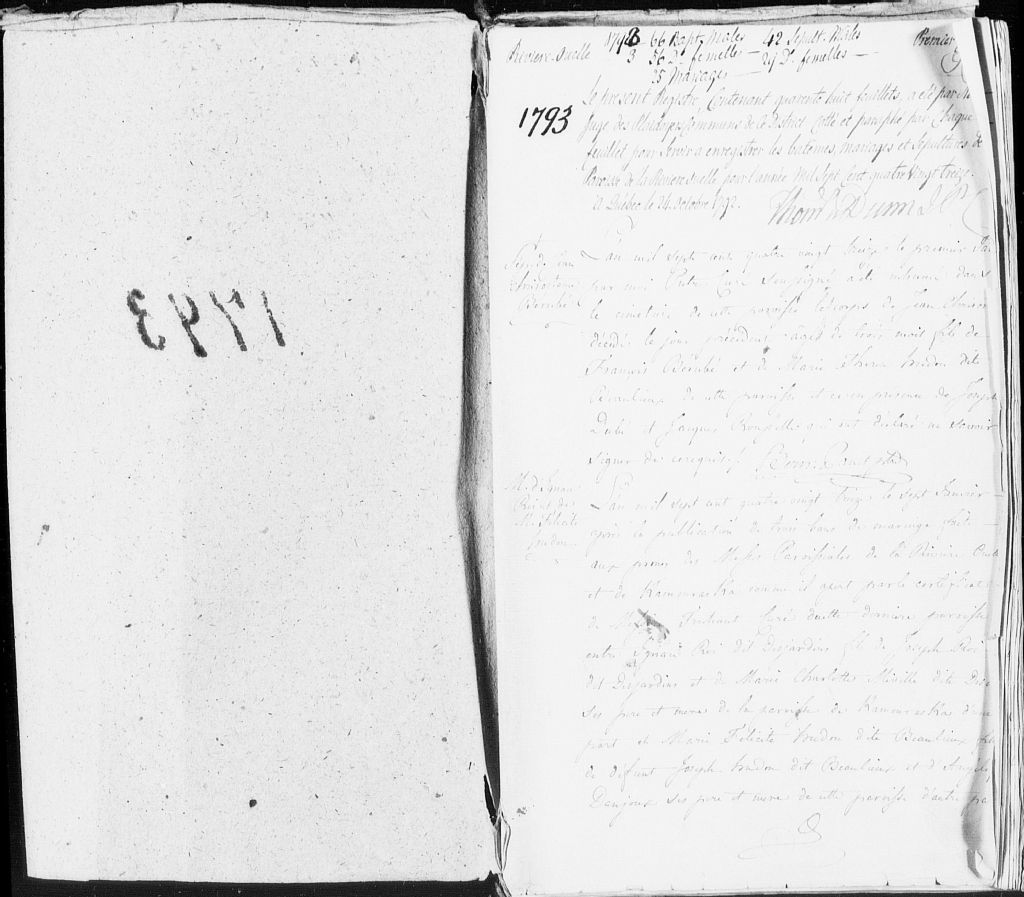 1793
Riviere Ouelle 1793 66 Bapt. Males 42 Sepult. Males Premier
3 56 D°. femelles 29 D°. femelles
25 Mariages
1793
Le present Registre, Contenant quarente huit feuillets, a été par
Juge des Plaidoyers Communs de ce District Cotté et paraphé par Chaque
feuillet pour servir a enregistrer les batêmes, mariages et sépultures de
Paroisse de la Riviere Ouelle pour l'année Mil Sept Cent quatre vingt treize
A Quebec le 24 Octobre 1792.
Thom Dunn
L'an mil sept cent quatre vingt treize le premier
par moi Prêtre Curé soussigné a été inhumé dans
Berubé le cimetière de cette paroisse le corps de Jean
décédé le jour précédent âgé de trois mois fils de
François Berubé et de Marie hudon dite
Beaulieux de cette paroisse et ce en présence de Joseph
Dubé et Jacques qui ont déclaré ne savoir
signer de ce requis
M. d'Ignace L'an mil sept cent quatre vingt treize le sept Janvier
après la publication de trois bans de mariage faite
M. Felicité aux prones des Messes Paroissiales de la Rivière Ouelle
hudon et de Kamouraska comme il apert par le certificat
de Trutaut Curé de cette derniere paroisse
entre Ignace Roi dit Desjardins fils de Joseph Roi
dit Desjardins et de Marie Charlotte Miville dite
ses pere et mere de la paroisse de Kamouraska d'une
part et Marie Felicité hudon dite Beaulieux
de défunt Joseph hudon dit Beaulieux et d'Angele
Danjoux ses pere et mere de cette paroisse d'autre